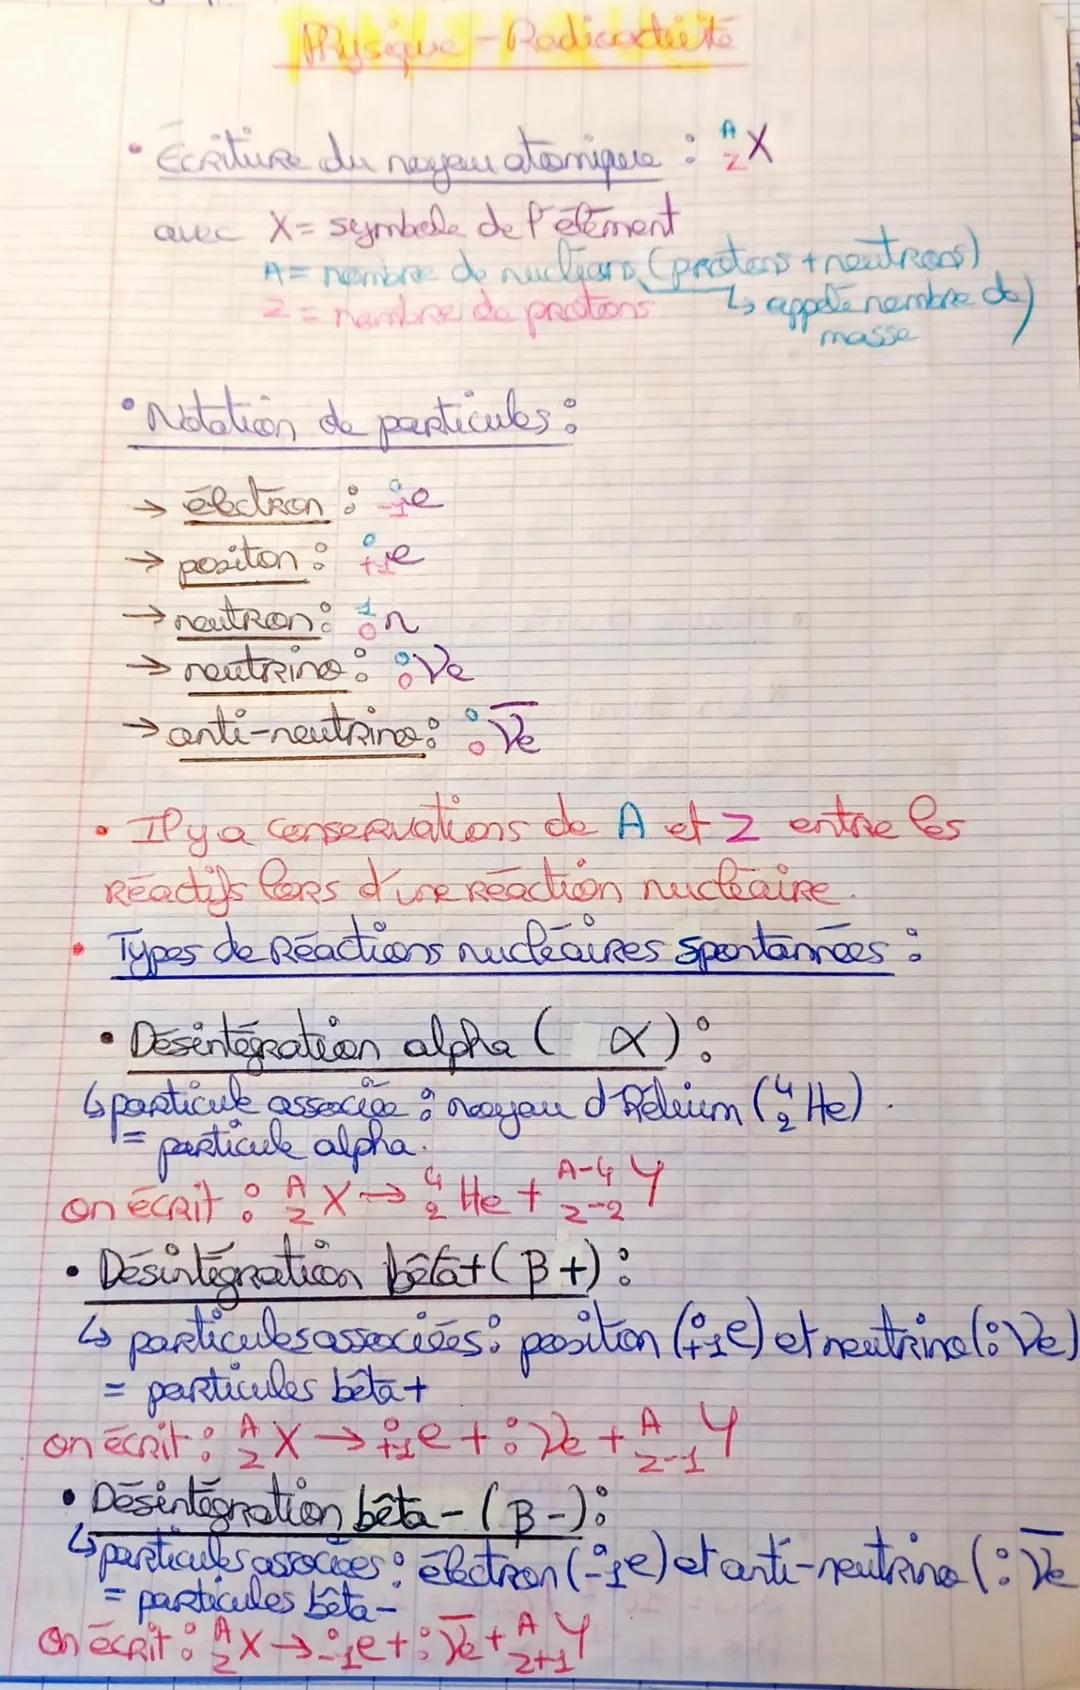 Physique - Radioactivité
• Écriture du noyau atomique : ᴬ_Z X
avec X = symbole de l'élément
A = nombre de nucléons (protons + neutrons)
↳ appelé nombre de masse)
Z = nombre de protons
• Notation de particules :
→ électron : ⁰₋₁e
→ positon : ⁰₊₁e
→ neutron : ¹₀n
→ neutrino : ⁰₀νe
→ anti-neutrino : ⁰₀ν̅e
• Il y a conservations de A et Z entre les
réactifs lors d'une réaction nucléaire.
• Types de Réactions nucléaires spontannées :
• Désintégration alpha ( α ) :
↳ particule associée : noyau d'hélium (⁴₂He).
= particule alpha.
on écrit : ᴬ_Z X → ⁴₂He + ᴬ⁻⁴_Z-2 Y
• Désintégration bêta+ (β+) :
↳ particules associées : positon (⁰₊₁e) et neutrino (⁰₀νe)
= particules bêta+
on écrit : ᴬ_Z X → ⁰₊₁e + ⁰₀νe + ᴬ_Z-1 Y
• Désintégration bêta - (β-) :
↳ particules associées : électron (⁰₋₁e) et anti-neutrino (⁰₀ν̅e
= particules bêta-
On écrit : ᴬ_Z X → ⁰₋₁e + ⁰₀ν̅e + ᴬ_Z+1 Y